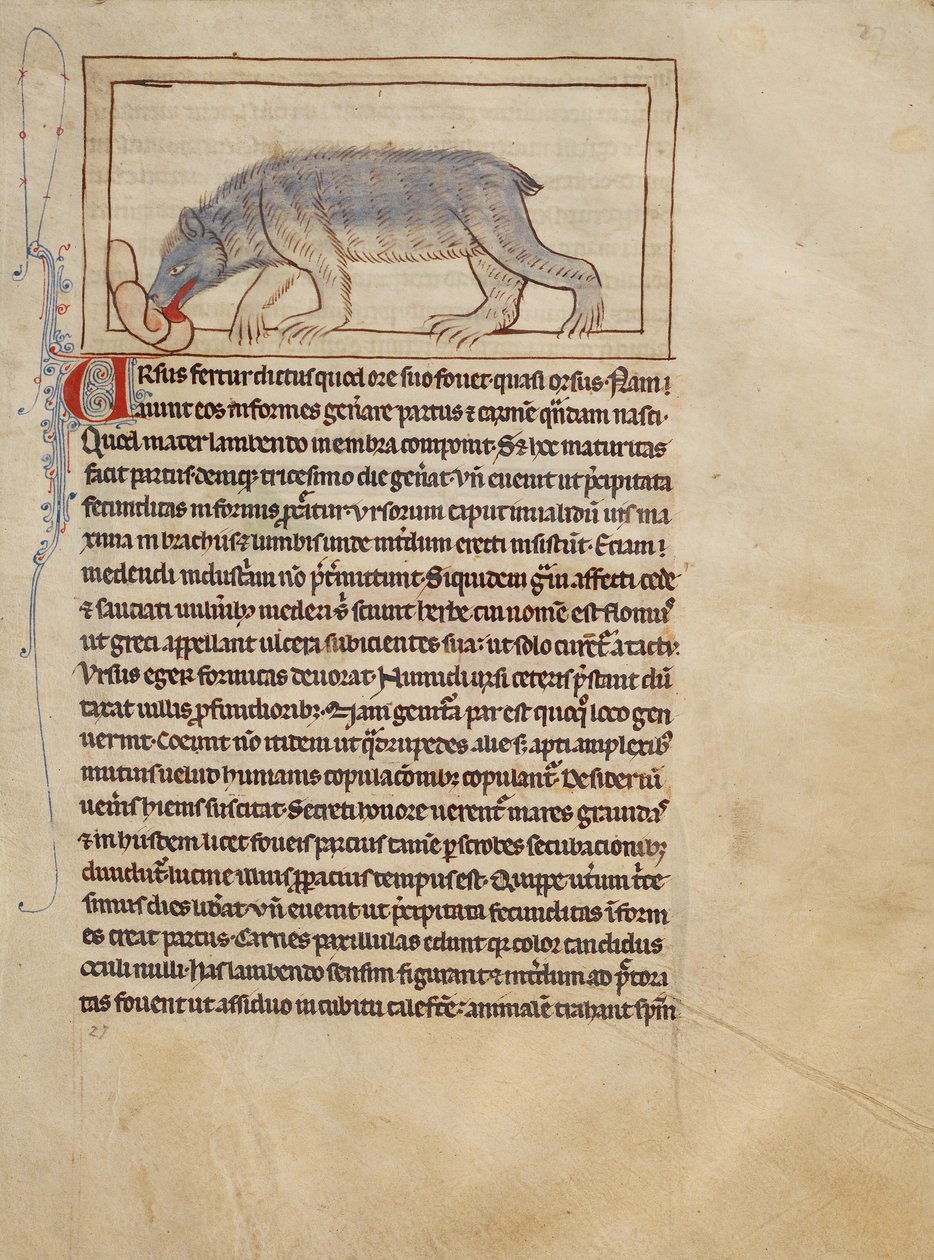 27
Ursus fertur dictus quod ore suo fouet· quasi orsus· Nam ⁊
aiunt eos informes gen̄are partus ⁊ carnē q̄ndam nasci·
Quod mater lambendo in membra componit· S; hoc maturitas
facit partus· deniq; tricesimo die gen̄at· vn̄ euenit ut p̄cipitata
fecunditas informis p̲creat᷑· vrsorum caput inualidū uis ma
xima in brachiis ⁊ lumbis unde int̄dum erecti insistūt· Eciam ⁊
medendi industriam nō p̄t̄mittunt· Siquidem gͣui affecti cede
⁊ sauciati uulnib; mederi sͥ sciunt herbe· cui nomē est flomus
ut greci appellant ulcera subicientes sua· ut solo curent᷑ a tactu·
Vrsus eger formicas deuorat· Numidi ursi ceteris p̄stant dū
taxat uillis profundiorib;· Nam genit᷑a par est quoqͦ loco gen
uerint· Coeunt nō itidem ut qͣdrupedes alie s; apti amplexib;
mutuis uelud humanis copulac̄onib; copulant᷑· Desideriū
uen̄is hiems suscitat· Secreti honore uerent᷑ mares grauidas
⁊ in hisdem licet foueis partus tamē p̲ scrobes secubacionib;
diuidunt᷑ lucine illius p̲pacius tempus est· Quippe ut̄um t̄ce
simus dies lib̄at· vn̄ euenit ut p̄cipitata fecunditas īform
es creat partus· Carnes paxillulas edunt q; color candidus
oculi nulli· Has lambendo sensim figurant ⁊ int̄dum ad p̄cori
tas fouent ut assiduo in cubitu calefc̄e· animalē trahant sp̄m
27